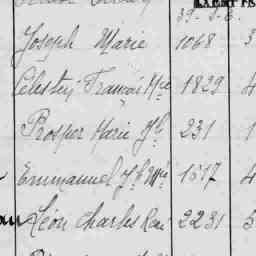 39. S. E.
Joseph Marie 1068 3
Célestin François Mie 1829 4
Prosper Marie Jh 231 1
Emmanuel Jh Mie 1517 4
Léon Charles René 2231 5